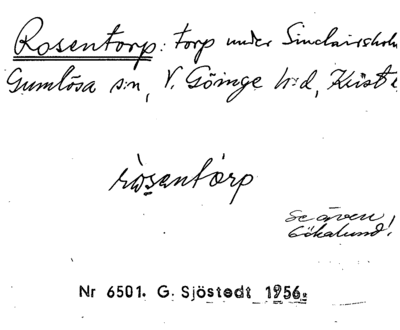 Rosentorp: torp under Sinclairsholm
Gumlösa s:n, V. Göinge h:d, Krist
ròsentórp
se även
Gökalund!
Nr 6501. G. Sjöstedt 1956.